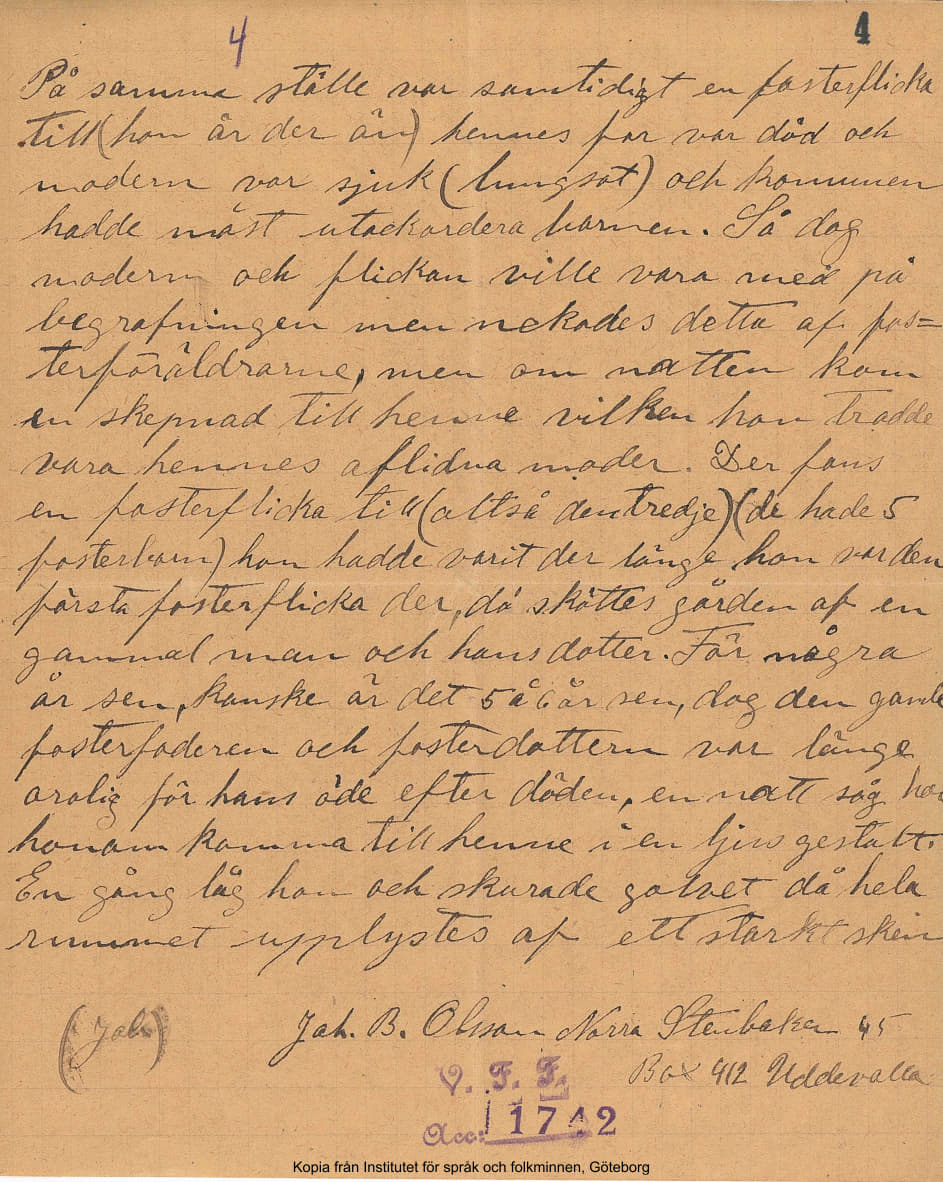 4 4
På samma ställe var samtidigt en fosterflicka
till (hon är der än) hennes far var död och
modern var sjuk (lungsot) och kommunen
hadde måst utackordera barnen. Så dog
modern och flickan ville vara med på
begrafningen men nekades detta af fos=
terföräldrarne, men om natten kom
en skepnad till henne vilken hon trodde
vara hennes aflidna moder. Der fans
en fosterflicka till (altså den tredje) (de hade 5
fosterbarn) hon hadde varit der länge hon var den
första fosterflicka der, då sköttes gården af en
gammal man och hans dotter. För några
år sen, kanske är det 5 à 6 år sen, dog den gamle
fosterfaderen och fosterdottern var länge
orolig för hans öde efter döden, en natt såg hon
honom komma till henne i en ljus gestalt.
En gång låg hon och skurade golvet då hela
rummet upplystes af ett starkt sken
Joh. B. Olsson Norra Stenbacken 45
Box 412 Uddevalla
V. F. F.
Acc: 1742
Kopia från Institutet för språk och folkminnen, Göteborg